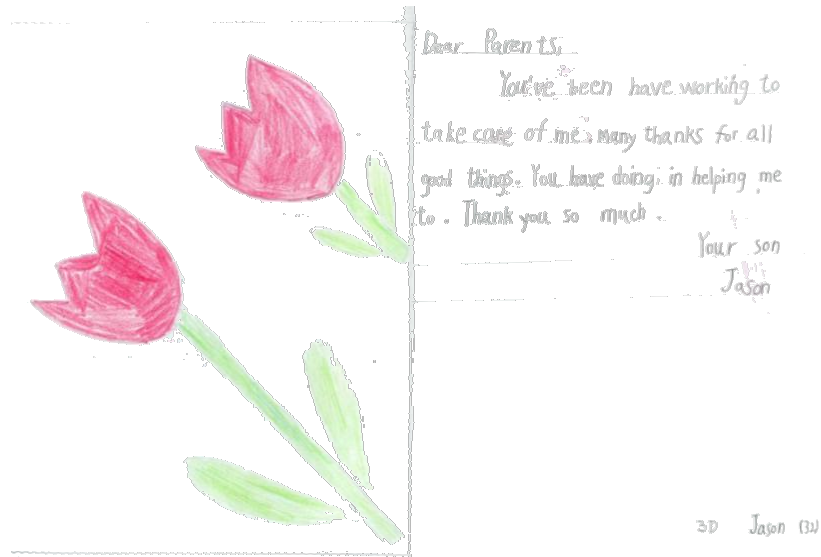 Dear Parents,
You've been have working to
take care of me. Many thanks for all
good things. You have doing. in helping me
to. Thank you so much.
Your son
Jason
3D Jason (32)